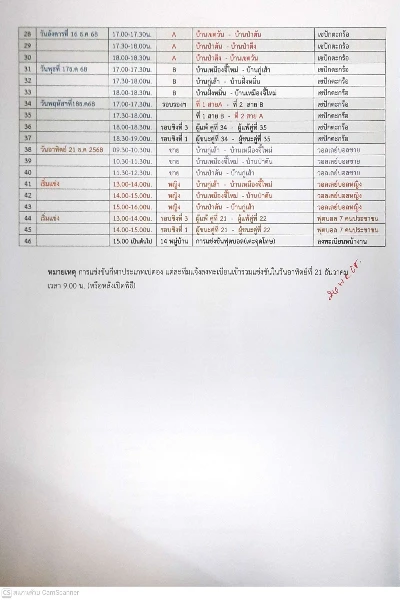 28 วันอังคารที่ 16 ธ.ค 68 17.00-17.30น. A บ้านเขตวัน - บ้านป่าตัน เซปักตะกร้อ
29 17.30-18.00น. A บ้านป่าตัน - บ้านป่าติง เซปักตะกร้อ
30 18.00-18.30น. A บ้านป่าติง - บ้านเขตวัน เซปักตะกร้อ
31 วันพุธที่ 17ธ.ค 68 17.00-17.30น. B บ้านเหมืองจี้ใหม่ - บ้านกู่เส้า เซปักตะกร้อ
32 17.30-18.00น. B บ้านกู่เส้า - บ้านฝั่งหมิ่น เซปักตะกร้อ
33 18.00-18.30น. B บ้านฝั่งหมิ่น - บ้านเหมืองจี้ใหม่ เซปักตะกร้อ
34 วันพฤหัสฯที่18ธ.ค68 17.00-17.30น. รอบรองฯ ที่ 1 สายA - ที่ 2 สาย B เซปักตะกร้อ
35 17.30-18.00น. ที่ 1 สาย B - ที่ 2 สาย A เซปักตะกร้อ
36 18.00-18.30น. รอบชิงที่ 3 ผู้แพ้ คู่ที่ 34 - ผู้แพ้คู่ที่ 35 เซปักตะกร้อ
37 18.30-19.00น. รอบชิงที่ 1 ผู้ชนะคู่ที่ 34 - ผู้ชนะคู่ที่ 35 เซปักตะกร้อ
38 วันอาทิตย์ 21 ธ.ค 2568 09.30-10.30น. ชาย บ้านกู่เส้า - บ้านเหมืองจี้ใหม่ วอลเลย์บอลชาย
39 10.30-11.30น. ชาย บ้านเหมืองจี้ใหม่ - บ้านป่าตัน วอลเลย์บอลชาย
40 11.30-12.30น. ชาย บ้านป่าตัน - บ้านกู่เส้า วอลเลย์บอลชาย
41 เริ่มแข่ง 13.00-14.00น. หญิง บ้านกู่เส้า - บ้านเหมืองจี้ใหม่ วอลเลย์บอลหญิง
42 14.00-15.00น. หญิง บ้านเหมืองจี้ใหม่ - บ้านป่าตัน วอลเลย์บอลหญิง
43 15.00-16.00น. หญิง บ้านป่าตัน - บ้านกู่เส้า วอลเลย์บอลหญิง
44 เริ่มแข่ง 13.00-14.00น. รอบชิงที่ 3 ผู้แพ้ คู่ที่ 21 - ผู้แพ้คู่ที่ 22 ฟุตบอล 7 คนประชาชน
45 14.00-15.00น. รอบชิงที่ 1 ผู้ชนะคู่ที่ 21 - ผู้ชนะคู่ที่ 22 ฟุตบอล 7 คนประชาชน
46 15.00 เป็นต้นไป 14 หมู่บ้าน การแข่งขันฟุตบอล(เตะจุดโทษ) ลงทะเบียนหน้างาน
หมายเหตุ การแข่งขันกีฬาประเภทเปตอง แต่ละทีมแจ้งลงทะเบียนเข้าร่วมแข่งขันในวันอาทิตย์ที่ 21 ธันวาคม
เวลา 9.00 น. (หรือหลังเปิดพิธี)
CS สแกนด้วย CamScanner